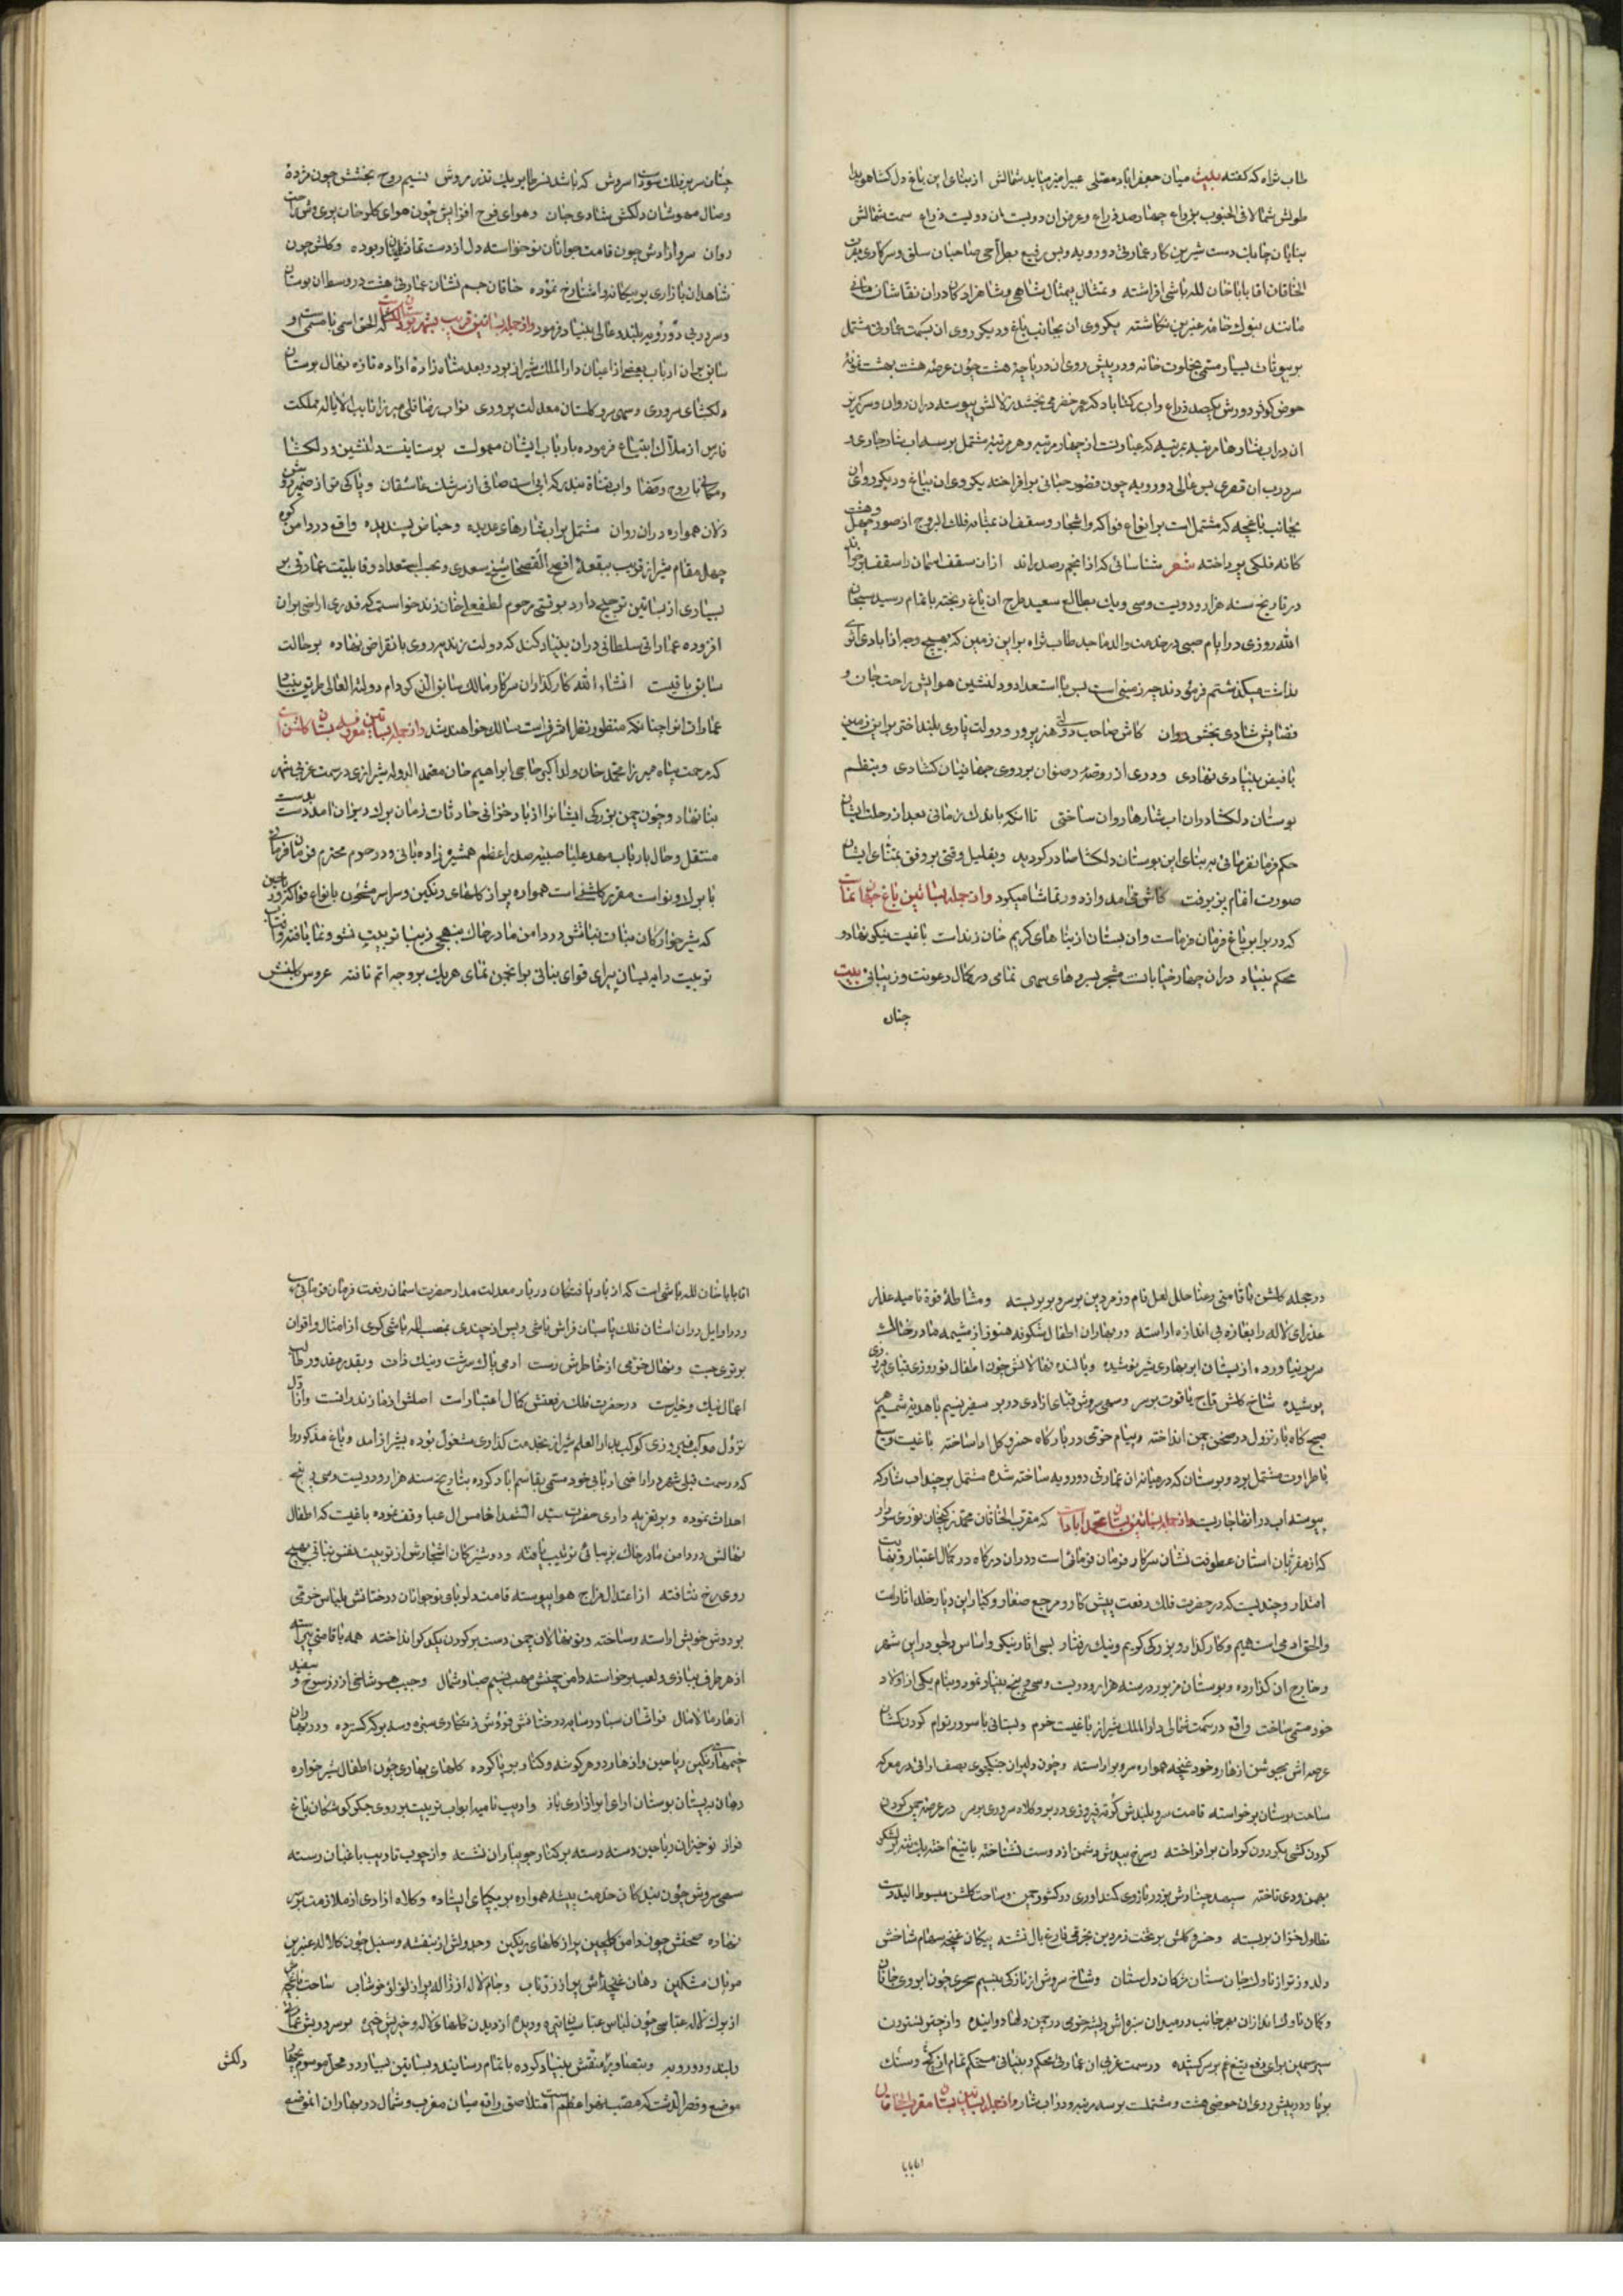 طاب ثراه که گفته بیت میان جعفراباد و مصلی عبیر امیز میاید شمالش از بنای این باغ دل کشا هویدا
طولش شمالا فی الجنوب بذراع چهار صد ذراع و عرض ان دویست ان دویست ذراع سمت شمالش
بنایان چابک دست شیرین کار عمارتی دورویه و بس رفیع صاحبان سلق و سرکاری مقرب
الخاقان اقا بابا خان لله باشی افراشته و تمثال بیمثال شاهی و شاهزادکان دران نقاشان مانی
مانند بنوک خامه عنبرین نکاشته یکروی ان بجانب باغ و دیکر روی ان بسمت عمارتی مشتمل
بر بیوتات بسیار مسمی بخلوت خانه و در پیش روی ان دریاچهٔ هشت چون عرصه هشت بهشت نمونهٔ
حوض کوثر دورش یکصد ذراع و اب رکناباد که عمر خضر می بخشد زلالش پیوسته دران روان و سرکریز
ان دراب شارها مرتبه بمرتبه که عبارتست از چهار مرتبه و هر مرتبه مشتمل بر سه اب شار جاری و
سر درب ان قصری بس عالی دورویه چون قصور جنانی برافراخته یکروی ان بباغ و دیکر روی ان
بجانب باغچه که مشتمل است بر انواع فواکه و اشجار و سقف ان بمثابه فلک البروج از صور چهل و هشت
کانه فلکی پرداخته شعر شناسائی که از انجم رصد راند ازان سقف اسمان را سقف بر خواند
در تاریخ سنه هزار و دویست و سی و یک بطالع سعید طرح ان باغ ریخته باتمام رسید سبحان
الله روزی در ایام صبی در خدمت والد ماجد طاب ثراه بر این زمین که بهیچ وجه از ابادی اثری
نداشت میکذشتم فرمودند چیز زمینی است بس با استعداد و دلنشین هوایش راحت جان و
فضایش شادی بخش روان کاش صاحب دولتی هنر پرور و دولت یاری بلند اختر براین زمین
با فیض بنیادی نهادی و دری از روضهٔ رضوان بر روی جهانیان کشادی و بنظم
بوستان دلکشا دران اب شارها روان ساختی تا انکه باندک زمانی بعد از رحلت ایشان
حکم فرمانفرمائی بر بنای این بوستان دلکشا صادر کردید و بقلیل وقتی بر وفق تمنای ایشان
صورت اتمام پذیرفت کاش می مد و از دور تماشا میکرد و از جمله بساتین باغ جهان نماست
که در برابر باغ فرمان فرماست و ان بستان از بنا های کریم خان زند است باغیست نیکی نهاد و
محکم بنیاد دران چهار خیابانست مشجر بسروهای سهی تمامی در کمال رعونت و زیبائی بیت
چنان
چنان سر بر فلک سود است سروش که باشد نسر طایر یک تذروش نسیم روح بخشش چون مژدهٔ
وصال مهوشان دلکش بشادی جان و هوای فرح افزایش چون هوای کلرخان پری وش راحت
روان سرو ازادش چون قامت جوانان نوخواسته دل از دست نظاره کیان ربوده و کلش چون
شاهدان بازاری بر بیکانه و اشنا رخ نموده خاقان جم نشان عمارتی هشت در وسط ان بوستان
و سر دربی دورویه بلند و عالی بنیاد فرمود و از جمله بساتین قریب بشهر بوستان دلکشاست که الحق اسمی با مسمی است و
سابق بران ارباب بعضی از اعیان دارالملک شیراز بود و بعد شاهزادهٔ ازاده تازه نهال بوستان
دلکشای سروری و سهی سرو کلستان معدلت پروری نواب رضا قلی میرزا نایب الایاله مملکت
فارس از ملاک ابتیاع فرموده بارباب ایشان معمولست بوستانیست دلنشین و دلکشا
و مکانی با روح و صفا و اب قناة بندر که ابی است صافی از سرشک عاشقان و پاکی تر از ضمیر روشن
دلان همواره دران روان مشتمل بر اب شارهای عدیده و حیاض پسندیده واقع در دامن کوه
چهل مقام شیراز قریب ببقعهٔ افصح الفصحا شیخ سعدی و بحسب استعداد و قابلیت عمارتی بر
بسیاری از بساتین ترجیح دارد بوقتی مرحوم لطفعلی خان زند خواست که قدری اراضی بران
افزوده عماراتی سلطانی دران بنیاد کند که دولت زندیه روی بانقراض نهاده بر حالت
سابق باقیست انشاء الله کارکذاران سرکار مالک سابق الذکر دام دولته العالی طریق بنیان
عمارات انرا چنانکه منظور نظر اشرف است سالک خواهند شد و از جمله بساتین معروفه بستان کلشن است
که مرحمت پناه میرزا محمد خان ولد اکبر حاجی ابراهیم خان معتمد الدوله شیرازی در سمت غربی شهر
بنا نهاد و چون چمن بزرکی ایشانرا از باد خزانی حادثات زمان برک ریزان امد دست بدست
منتقل و حال بارباب مهد علیا صبیه صدر اعظم همشیره زاده بانی و در حرم محترم فرمانفرمای
با برک و نواست مقرر کاشی است همواره پر از کلهای رنکین و سراسر مشحون بانواع فواکه و ریاحین
که شیرخوارکان نبات نباتش در دامن مادر خاک بنهجی زیبا تربیت نشو و نما یافته و از وقت
تربیت دایه بسان پرای قوای نباتی بر انجمن نمای هر یک بر وجه اتم تافته عروس کلبنش
در حجله کلشن با قامتی رعنا حلل لعل فام و زمردین بر سر و بر بربسته و مشاطهٔ قوهٔ نامیه عذار
عذرای لاله را بغازه بی اندازه اراسته در بهاران اطفال شکوفه هنوز از مشیمه مادر خاک
سر بر نیاورده از پستان ابر بهاری شیر نوشیده و بالنده نهالانش چون اطفال نوروزی قبای فیروزی
پوشیده شاخ کلش تاج یاقوت بر سر و سهی سروش قبای ازادی در بر سفیر نسیم با هدیه شمیم هر
صبح کاه بار نزول در صحن چمن انداخته و پیام خرمی در بارکاه خسرو کل ادا ساخته باغیست وسیع
با طراوت مشتمل بود و بوستان که در میانه ان عمارتی دورویه ساخته شده مشتمل بر چند اب شار که
پیوسته اب در انها جاریست و از جمله بساتین بستان محمد اباد است که مقرب الخاقان محمد زکیخان نوری سردار
که از مقربان استان عطوفت نشان سرکار فرمان فرمائی است و دران درکاه در کمال اعتبار و نهایت
اقتدار و چندیست که در حضرت فلک رفعت پیش کار و مرجع صغار و کبار این دیار خلد اثار است
والحق ادمی است فهیم و کارکذار و بزرکی کریم و نیک رفتار بسی اثار نیکی و اساس دلجو در این شهر
و خارج ان کذارده و بوستان مزبور در سنه هزار و دویست و سی و پنج بنیاد نمود و بنام یکی از اولاد
خود مسمی ساخت واقع در سمت شمالی دارالملک شیراز باغیست خرم و بستانی با سرور توام کردن کشان
عرصه اش بجوشن ازهار و خود غنچه همواره سر و بر اراسته و چون دلیران جنکجوی بصف ارائی در معرکه
ساحت بوستان برخواسته قامت سرو بلندش کرته فیروزی در بر و کلاه سروری بر سر در عرصه چمن کردن
کردن کشی بکردون کردان برافراخته و سرخ بیدش دشمن از دوست نشناخته با تیغ اخته یک تنه بر لشکر
بهمن و دی تاخته سپهبد چنارش بزور بازوی کنداوری در کشور چمن و ساحت کلشن مبسوط الیدست
تطاول خزان بربسته و خسرو کلش بر تخت زمردین خرمی فارغ بال نشسته پیکان غنچه سهام شاخش
دلدوز تر از ناوک جان ستان ترکان دل ستان و شاخ سروش از نازکی بنسیم سحری چون ابروی خاقان
و کمان ناوک اندازان بهر جانب در میدان سبزه اش ریشه خرمی در چمن دلها دوانیده و از چتر نسترون
سپر سیمین برای دفع تیغ غم بر سر کشیده در سمت غربی ان عمارتی محکم و بنیانی مستحکم تمام از کچ و سنک
بر پا و در پیش روی ان حوضی هشت و مشتملست بر سه مرتبه و دو اب شار و از جمله بساتین بستان مقرب الخاقان
اقا بابا
اقا بابا خان لله باشی است که از بار یافتکان دربار معدلت مدار حضرت اسمان رفعت فرمان فرمائی است
و در اوایل دران استان فلک پاسبان فراش باشی و پس از چندی بمنصب لله باشی کوی از امثال و اقران
برتری جست و نهال خرمی از خاطرش رست ادمی پاک سرشت و نیک ذات و بقدر مقدور طالب
اعمال نیک و خیر است در حضرت فلک رفعتش کمال اعتبار است اصلش از مازندرانست و از اول
نزول موکب فیروزی کوکب بدارالعلم شیراز بخدمت کذاری مشغول بوده بشیراز امد و باغ مذکور را
که در سمت قبلی شهر در اراضی اربابی خود مسمی بقاسم اباد کرده بتاریخ سنه هزار و دویست و سی و پنج
احداث نموده و بر تعزیه داری حضرت سید الشهدا خامس ال عبا وقف نموده باغیست که اطفال
نهالش در دامن مادر خاک بزیبائی ترتیب یافته و دوشیزکان اشجارش از تربیت نفس نباتی بهیچ
روی رخ نتافته از اعتدال مزاج هوا پیوسته قامت دلربای نوجوانان درختانش بلباس خرمی
بر دوش خویش اراسته و ساخته و نو نهالان چمن دست بر کردن یکدکر انداخته همه با قامتی پیراسته
از هر طرف ببازی و لعب برخواسته دامن چمنش مهب نسیم صبا و شمال و جیب هر شاخی از زر سرخ و سفید
ازهار مالامال فراشان صبا در سایه درختانش فروش زمکاری سبزه و سه برکه کسترده و در بهاران
خیمهای رنکین ریاحین و ازهار در هر کوشه و کنار بر پا کرده کلهای بهاری چون اطفال شیرخواره
دهان بپستان بوستان ارای ابر ازاری باز و ادیب نامیه ابواب تربیت بر روی جکر کوشکان باغ
فراز نوخیزان ریاحین دسته دسته بر کنار جویباران نشسته و از چوب تادیب باغبان رسته
سهی سروش چون بندکان خدمت پیشه همواره بر یکپای ایستاده و کلاه ازادی از ملازمت بر سر
نهاده صحنش چون دامن کلچین پر از کلهای رنکین و جدولش از بنفشه و سنبل چون کلاله عنبرین
مویان مشکین دهان غنچه اش پر از زر ناب و جام لاله از ژاله پر از لؤلؤ خوشاب ساحت باغچه اش
از برک لاله عباسی چون لباس عباسیان و دیده از دیدن کلهای لاله و خیریش خیره بر سر دربش عمارتی
بلند و دورویه و بتصاویر منقش بنیاد کرده باتمام رسانیده و بساتین بسیار در محل موسوم بچهل
موضع و قصر الدشت که قصبه بنهر اعظم است متلاصق واقع میان مغرب و شمال در بهاران انموضع
دلکش